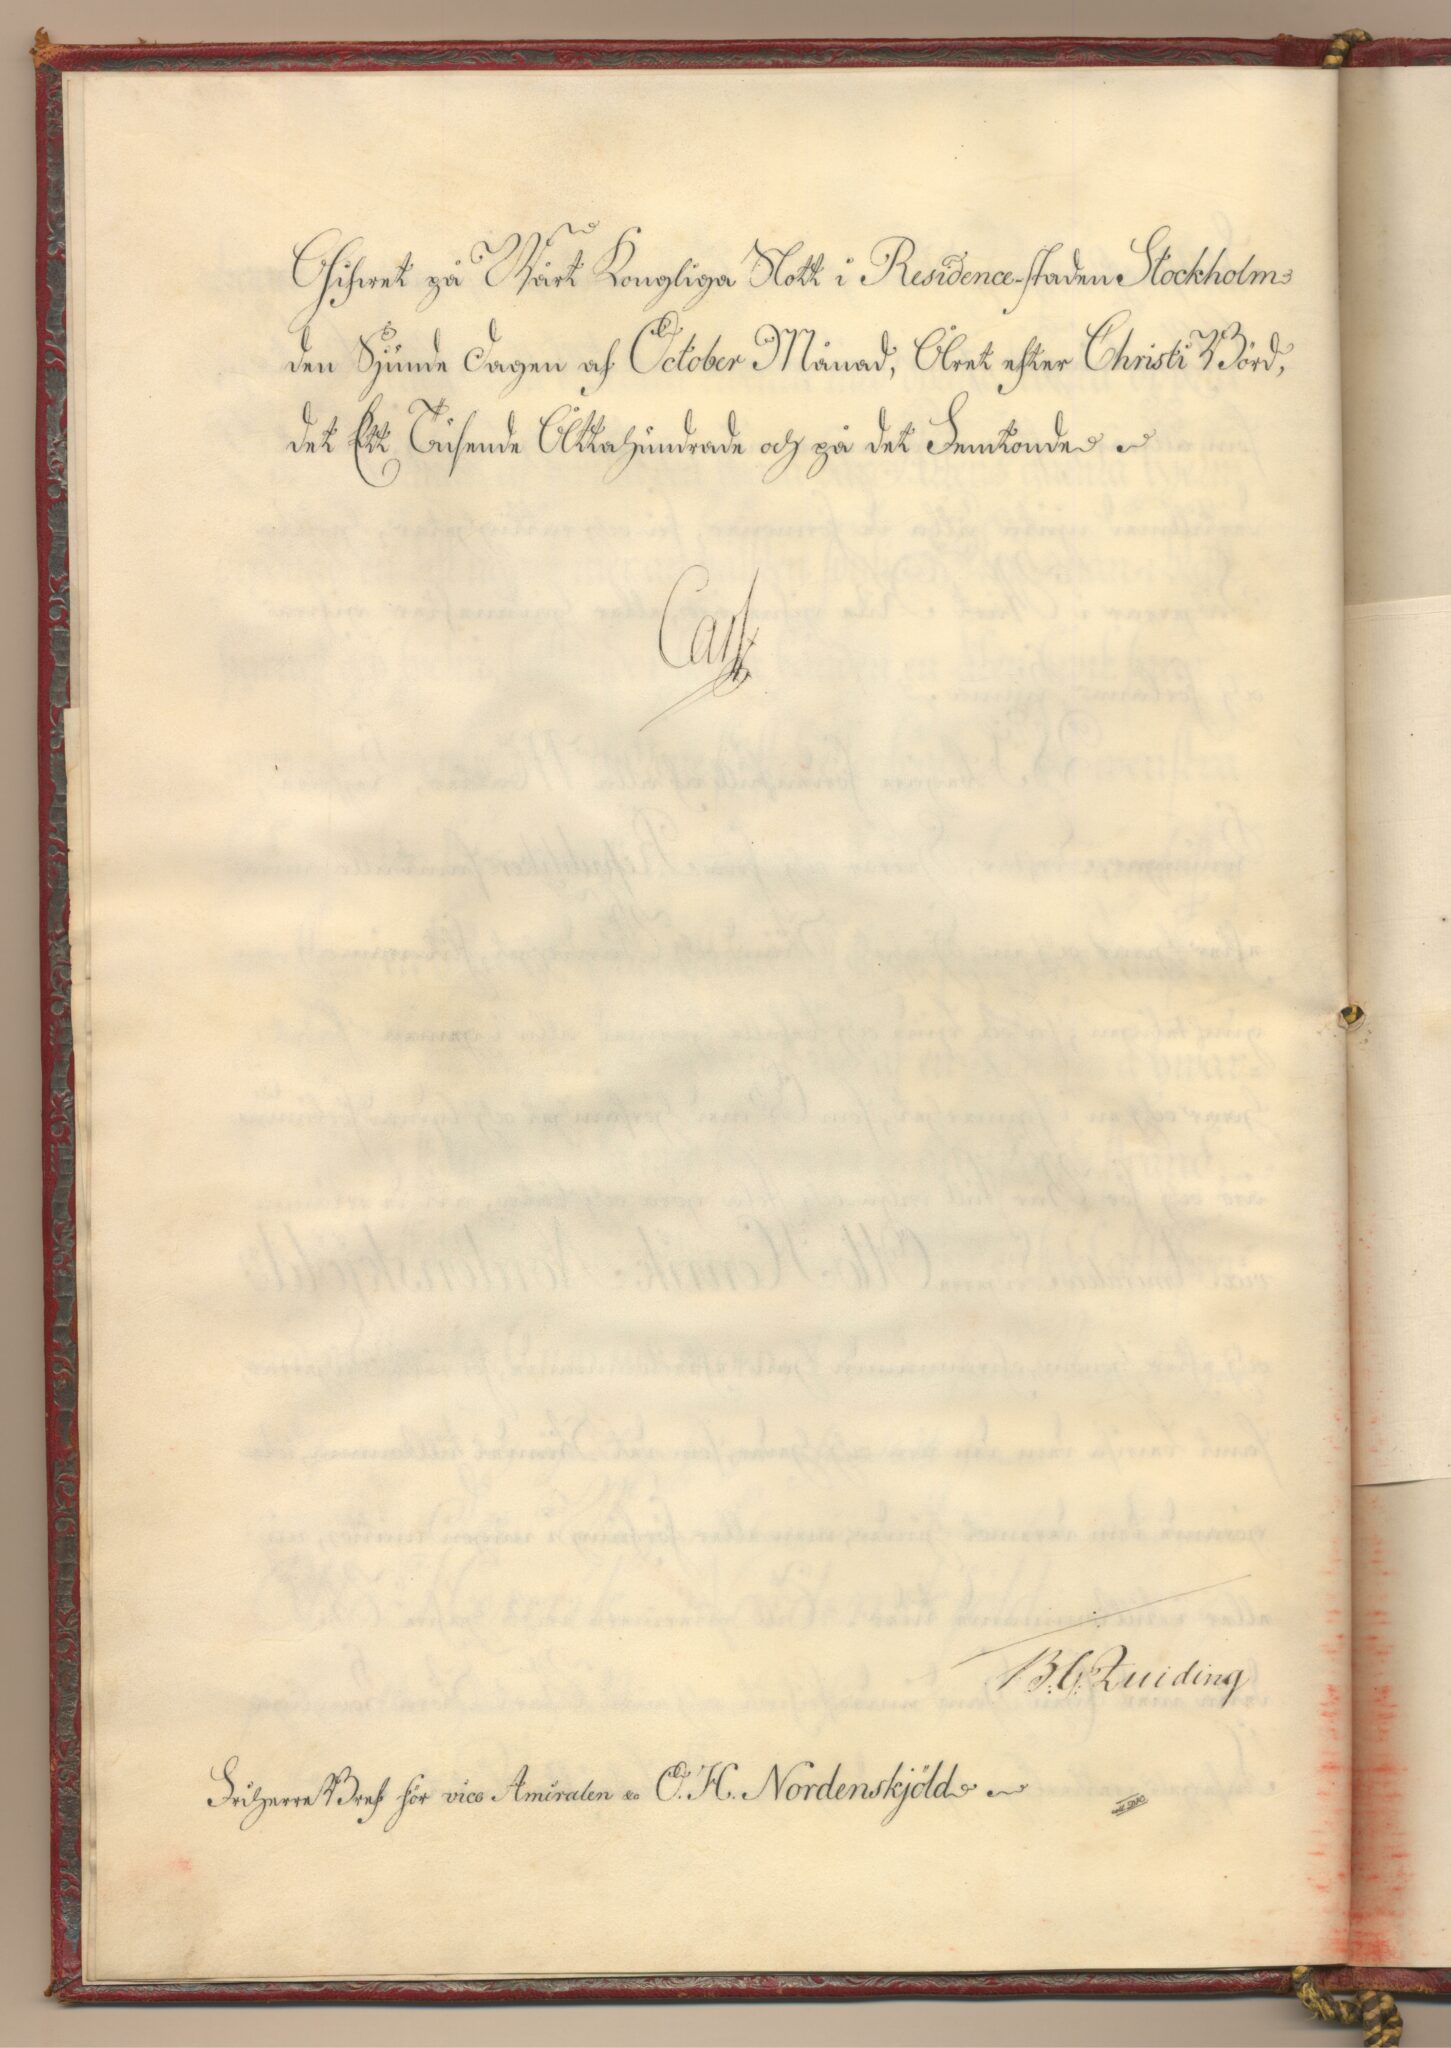 Gifwet på Wårt Kongliga Slott i Residence-staden Stockholm
den Sjunde dagen af October Månad, Året efter Christi Börd,
det Ett Tusende Ottahundrade och på det Femtonde
Carl
B. G. Quiding
Friherre Bref för vice Amiralen &c O. H. Nordenskjöld